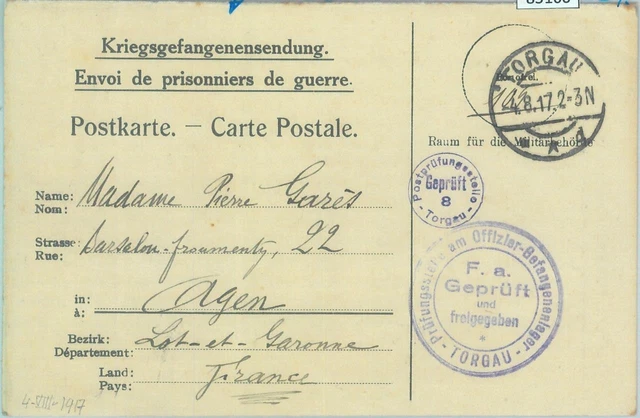 85100
Kriegsgefangenensendung.
Envoi de prisonniers de guerre.
Postkarte. — Carte Postale.
Name: Madame Pierre Garès
Nom:
Strasse: Barsalou-fromenty, 22
Rue:
in: Agen
à:
Bezirk: Lot-et-Garonne
Département:
Land: France
Pays:
4-VIII-1917
TORGAU
4.8.17.2-3N
Raum für die Militärbehörde
Postprüfungsstelle
Geprüft
8
- Torgau -
Prüfungsstelle am Offizier-Gefangenenlager
F. a.
Geprüft
und
freigegeben
*
- TORGAU -